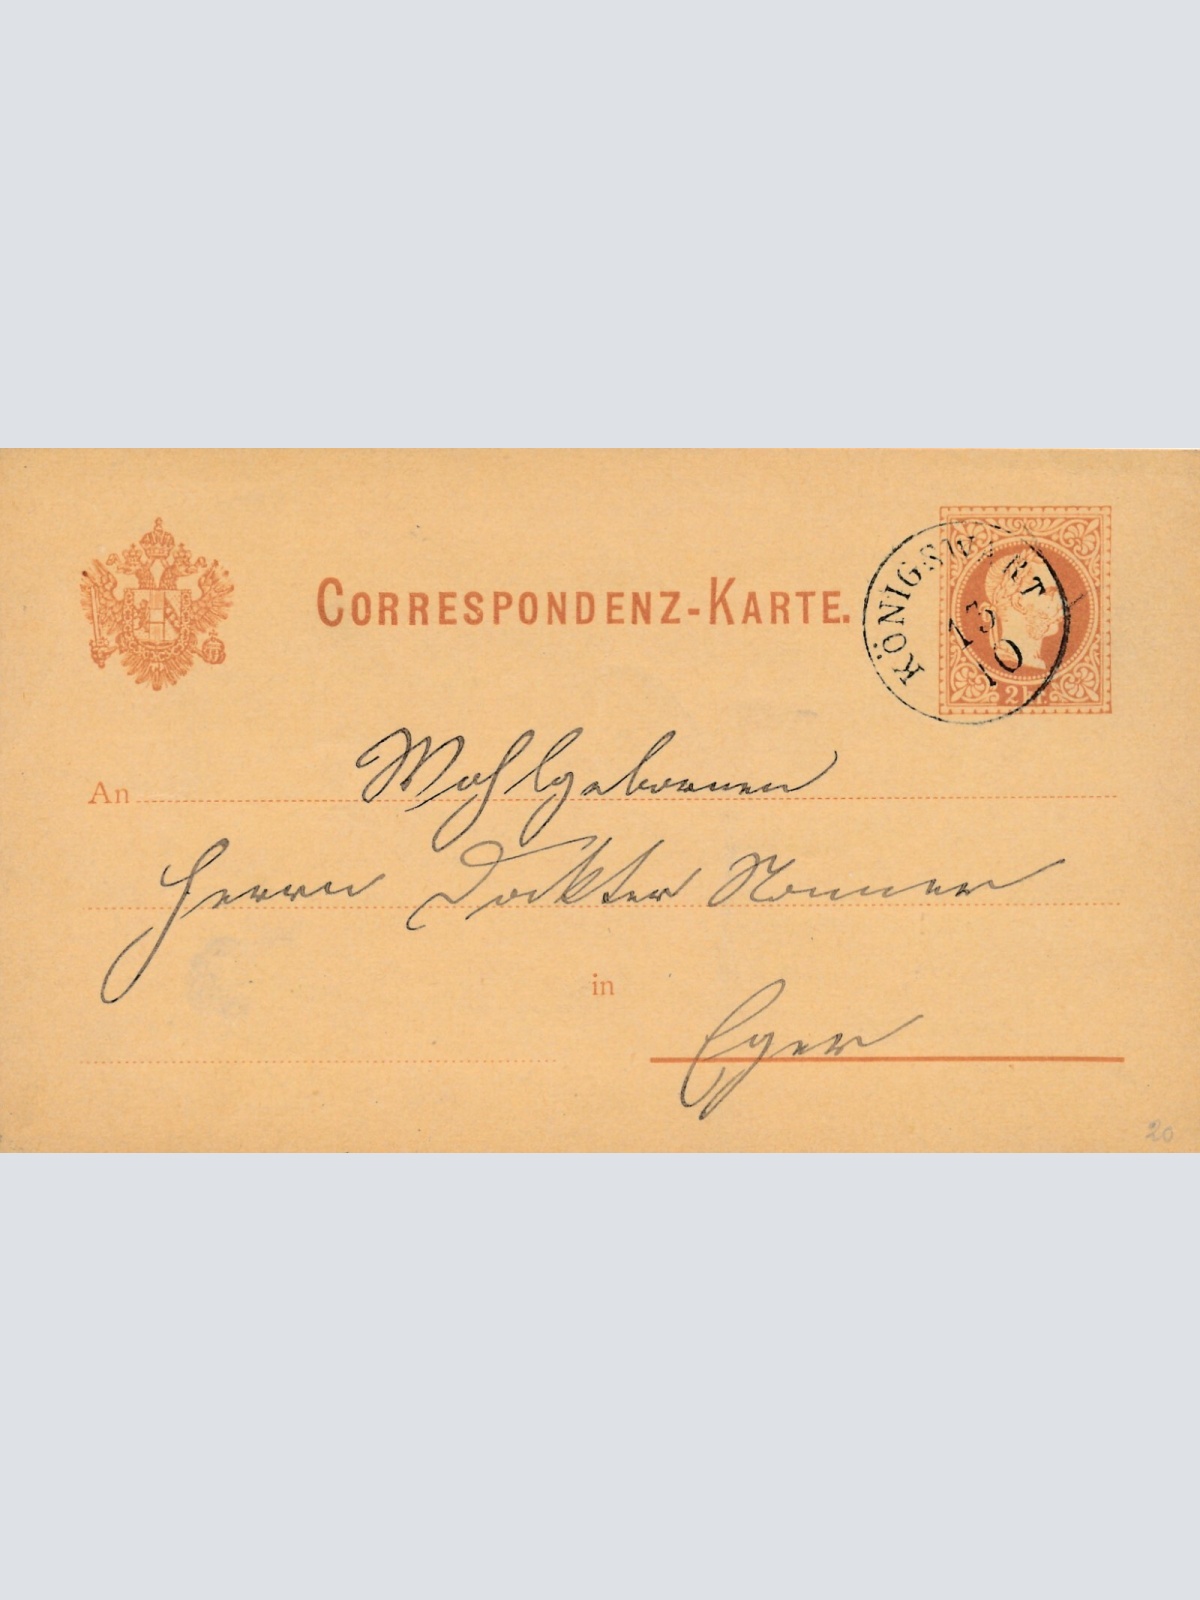 CORRESPONDENZ-KARTE.
KÖNIGSWART
13
10
2 kr.
An Wohlgebornen
Herrn Docktor
in
Eger
20